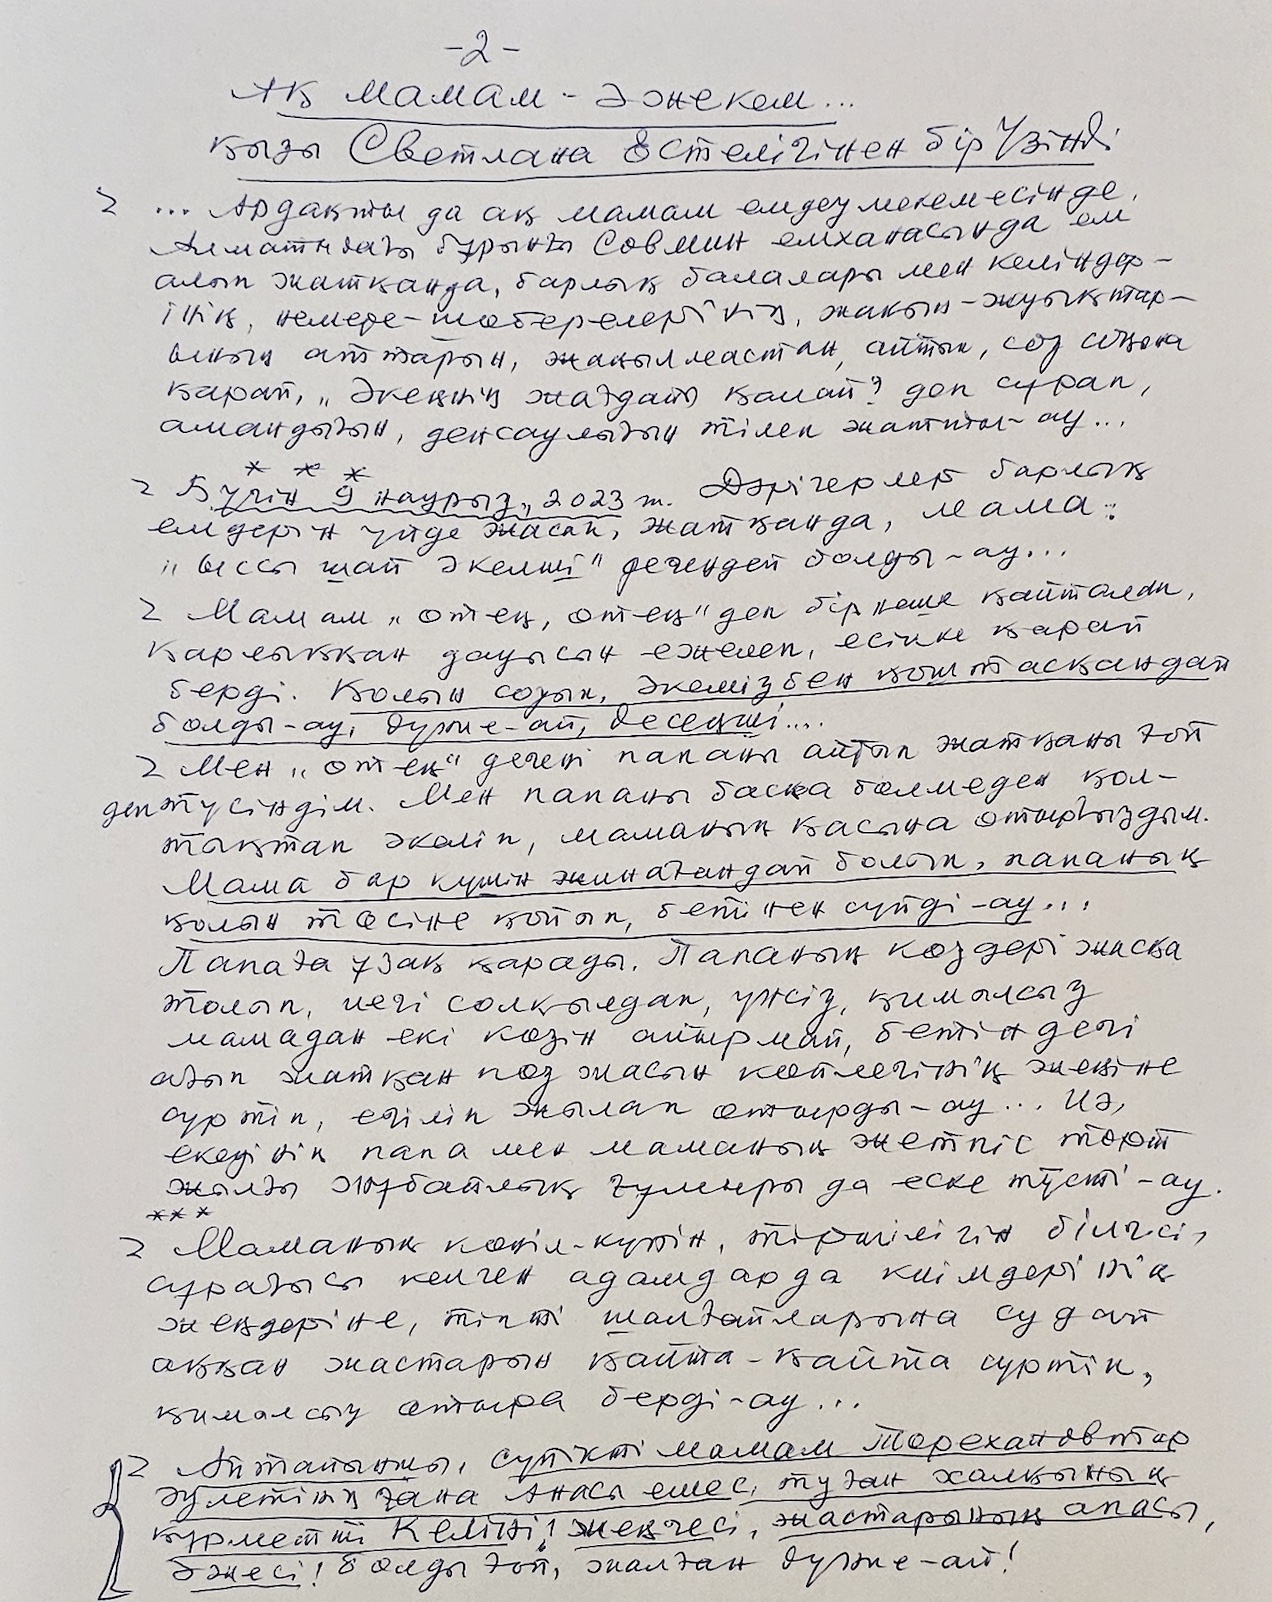 -2-
Ақ мамам - Әжекем...
қызы Светлана Естелігінен бір Үзінді
... Ардақты да ақ мамам емдеу мекемесінде,
Алматыдағы бұрынғы Совмин емханасында ем
алып жатқанда, барлық балалары мен келіндер-
інің, немере-шөберелерінің, жақын-жуықтар-
ының аттарын, жаңылмастан, айтып, сөз соңына
қарай, „Әкеңнің жағдайы қалай? деп сұрап,
амандығын, денсаулығын тілеп жатты-ау...
* * *
Бүгін „9 наурыз„ 2023 ж. Дәрігерлер барлық
емдерін үйде жасап, жатқанда, мама:
„Ыссы шай әкелші" дегендей болды-ау...
Мамам „отец, отец" деп бірнеше қайталап,
қарлыққан дауысын ежелеп, есікке қарай
берді. Қолын созып, әкемізбен қоштасқандай
болды-ау, дүние-ай, десеңші....
Мен „отец" дегені папаны айтып жатқаны ғой
деп түсіндім. Мен папаны басқа бөлмеден қол-
тықтап әкеліп, маманың қасына отырғыздым.
Мама бар күшін жинағандай болып, папаның
қолын төсіне қойып, бетінен сүйді-ау...
Папаға ұзақ қарады. Папаның көздері жасқа
толып, иегі солқылдап, үнсіз, қимылсыз
мамадан екі көзін айырмай, бетіндегі
ағып жатқан көз жасын көйлегінің жеңіне
сүртіп, егіліп жылап отырды-ау... Иә,
екеуінің папа мен маманың жетпіс төрт
жылғы жұбайлық ғұмыры да еске түсті-ау.
* * *
Маманың көңіл-күйін, тіршілігін білгісі,
сұрағысы келген адамдарда киімдерінің
жеңдеріне, тіпті шалғайларына судай
аққан жастарын қайта-қайта сүртіп,
қимылсыз отыра берді-ау...
Айтайыншы, сүйікті мамам Төрехановтар
әулетінің ғана Анасы емес, туған халқының
құрметті Келіні! жеңгесі, жастарының апасы,
Әжесі! болды ғой, жалған дүние-ай!